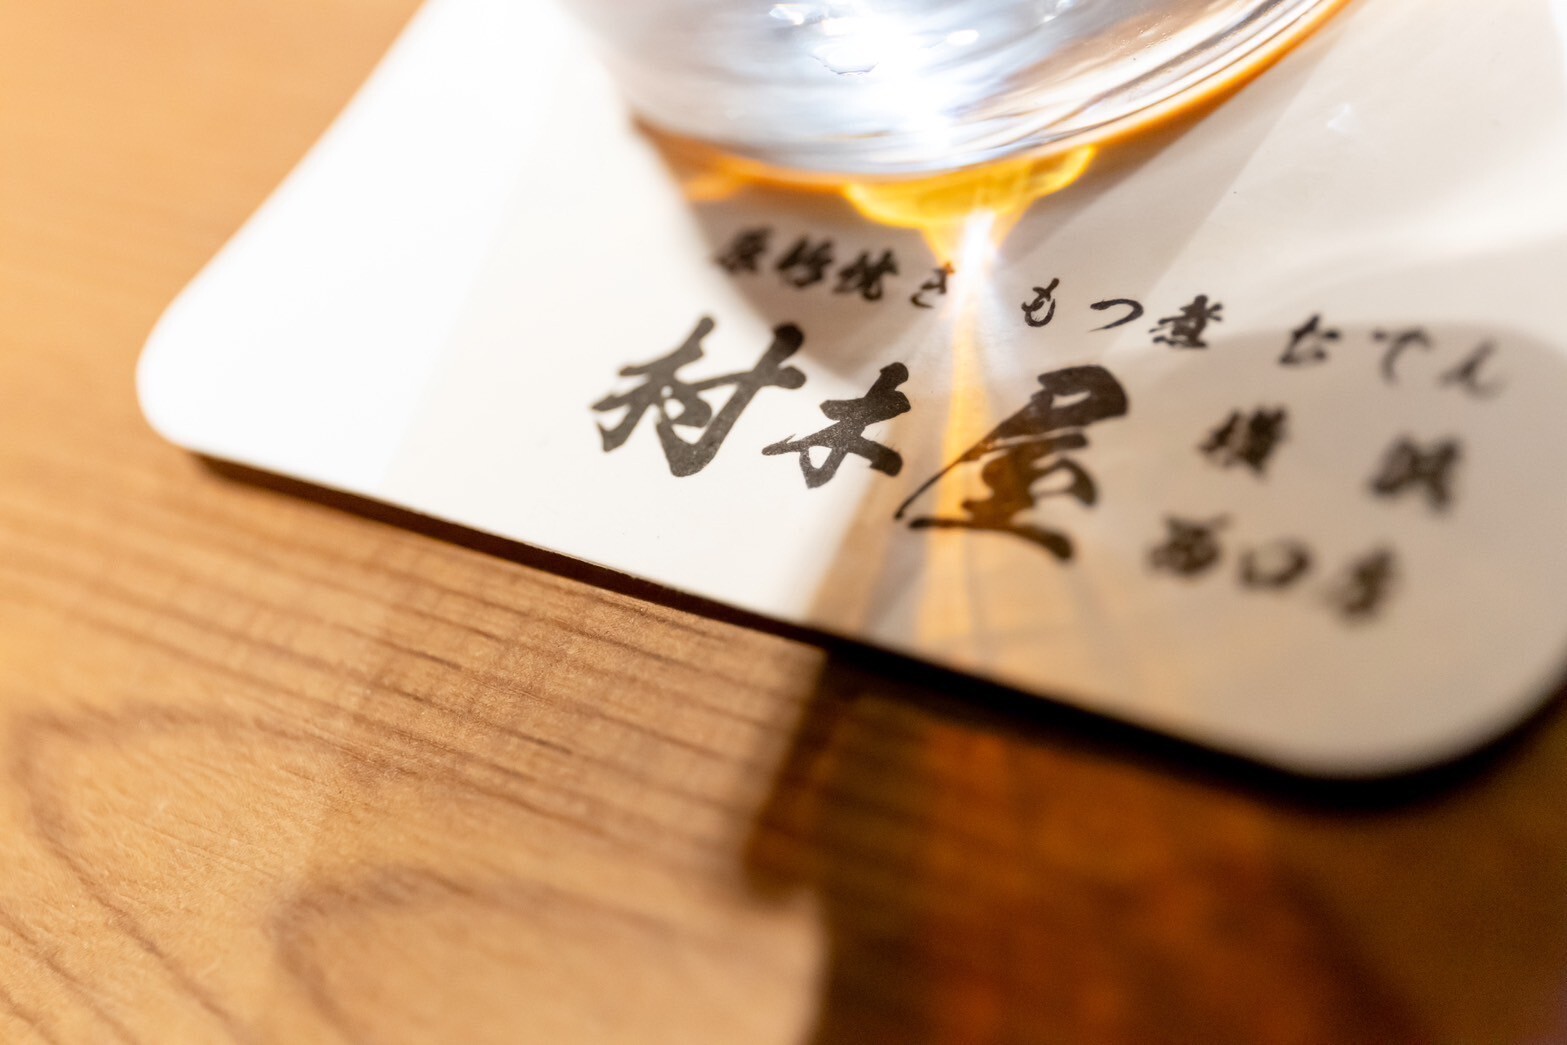 原始焼き もつ煮 おでん
村木屋
横濱
西口店